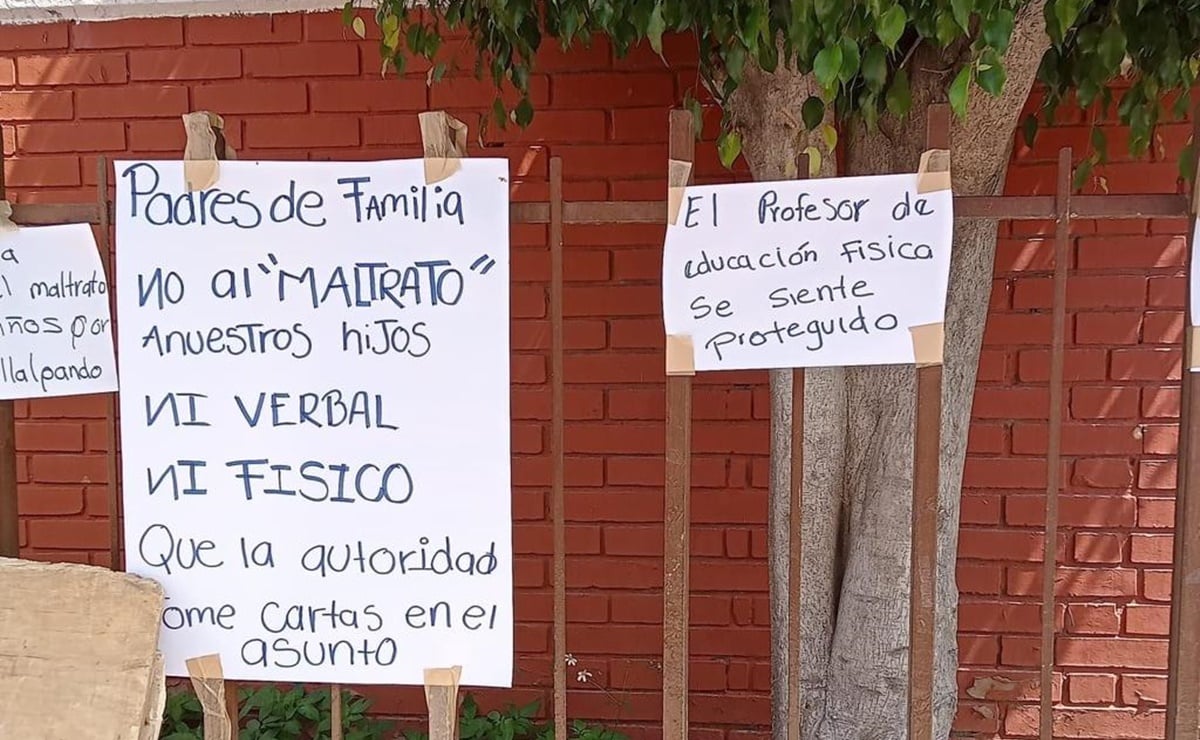 a
maltrato
por
Padres de Familia
NO al "MALTRATO"
Anuestros hijos
NI VERBAL
NI FISICO
Que la autoridad
ome cartas en el
asunto
El Profesor de
educación Fisica
se siente
proteguido